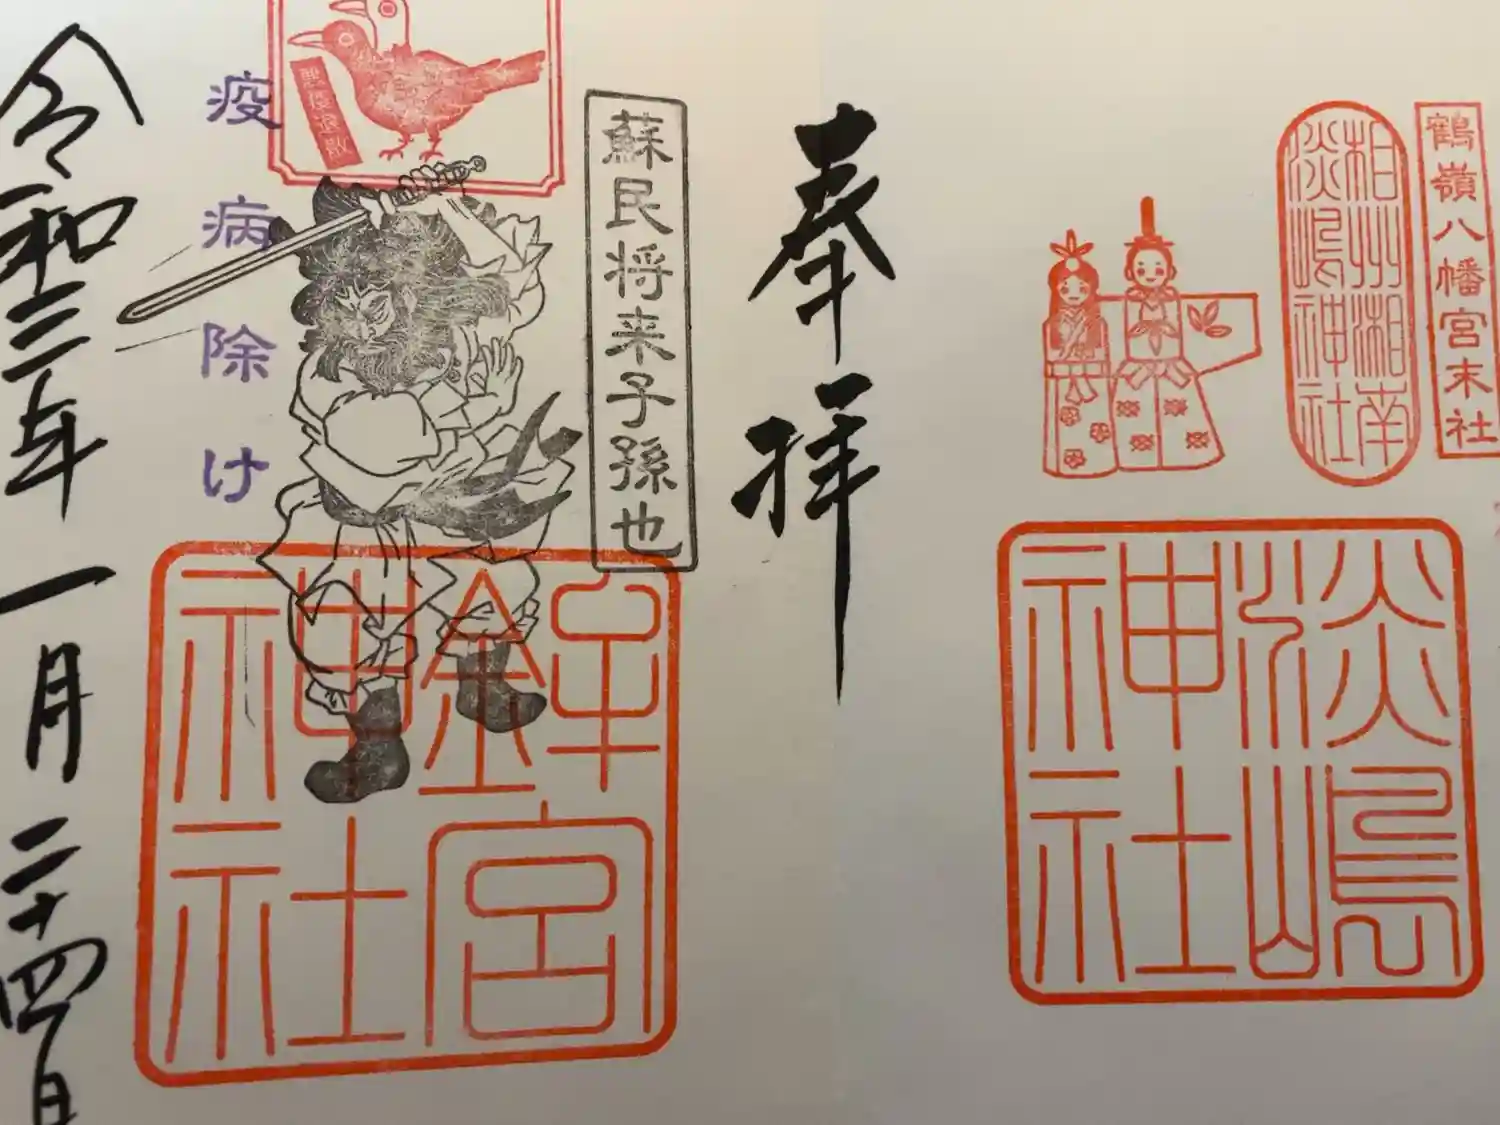 鶴嶺八幡宮末社
相州湘南
淡嶋神社
淡嶋
神社
奉拝
蘇民将来子孫也
疫病除け
悪疫退散
鉾宮
神社
令和三年一月二十四日